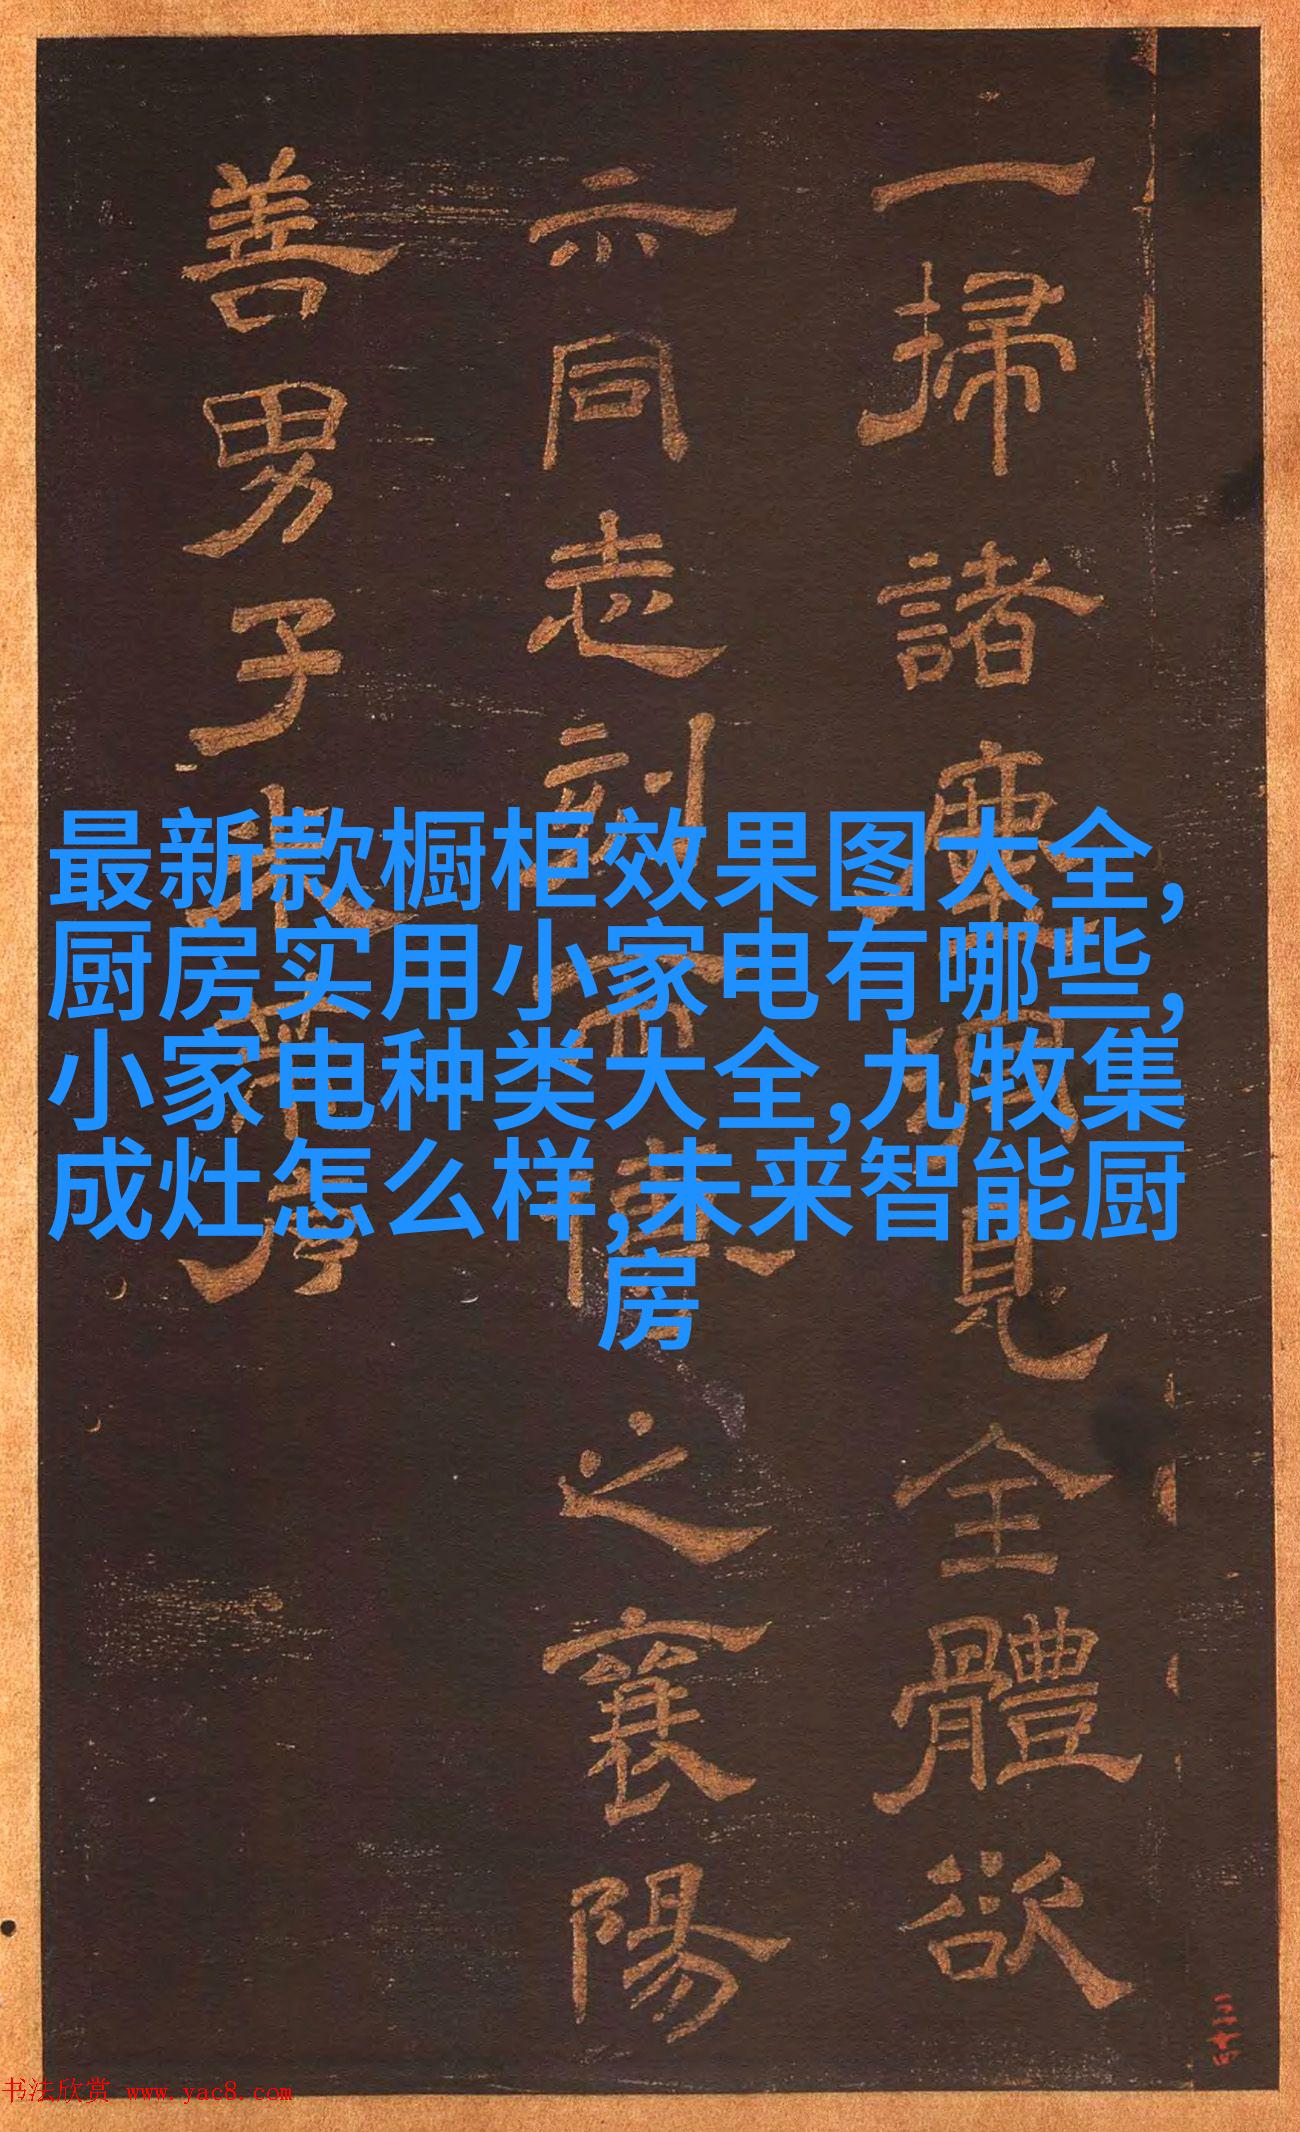 一掃諸塵洞見全體欲
示同志刻而傳之襄陽
善男子
最新款橱柜效果图大全,
厨房实用小家电有哪些,
小家电种类大全,九牧集
成灶怎么样,未来智能厨
房
三十四
书法欣赏 www.yac8.com